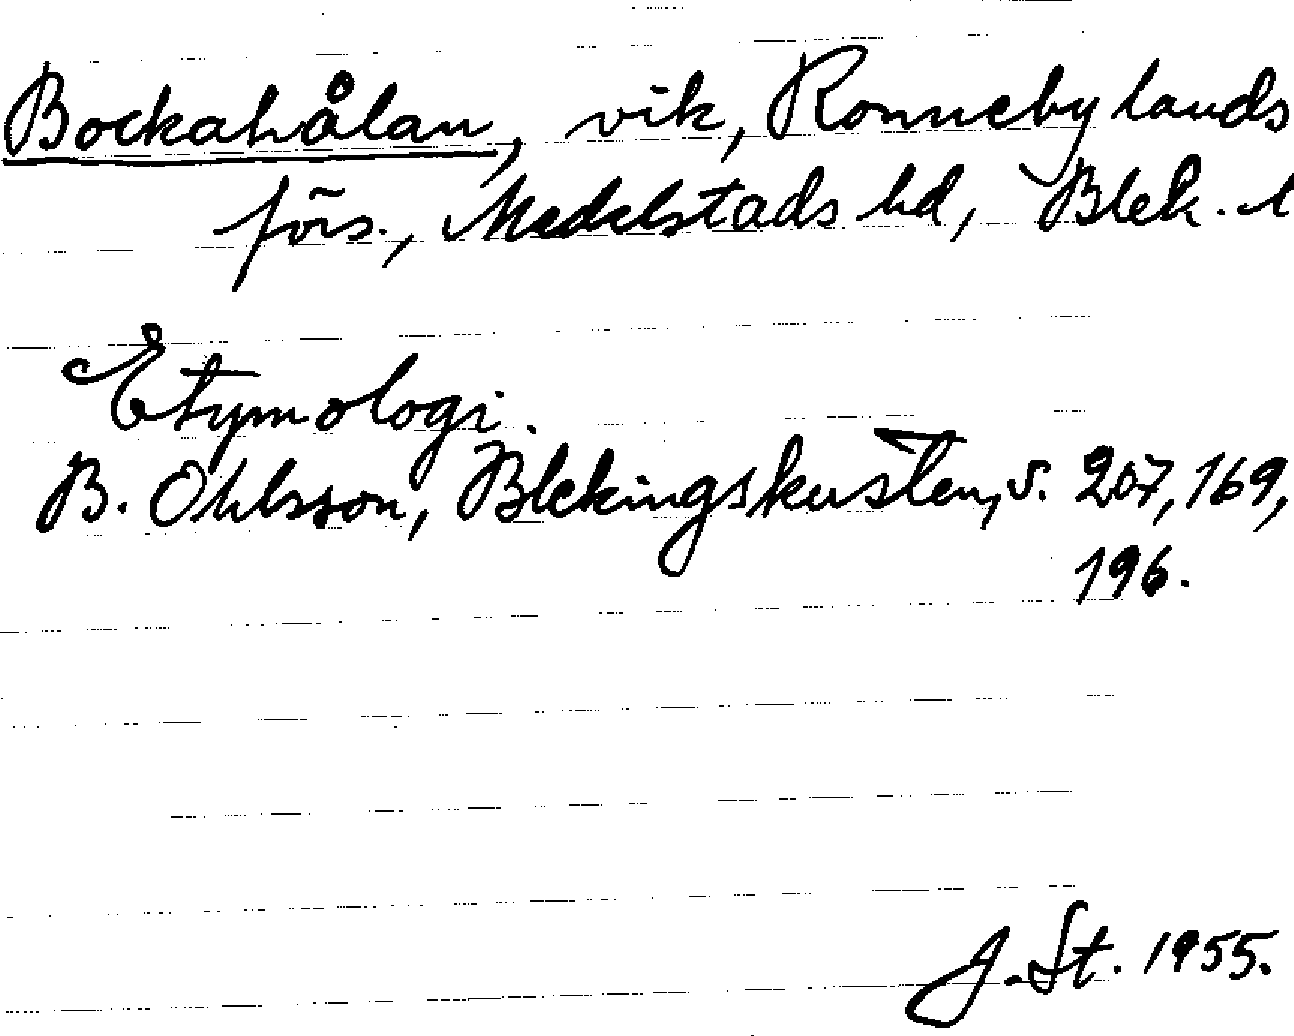 Bockahålan, vik, Ronneby lands
förs., Medelstads hd, Blek. l
Etymologi.
B. Ohlsson, Blekingskusten, s. 207, 169,
196.
J. St. 1955.